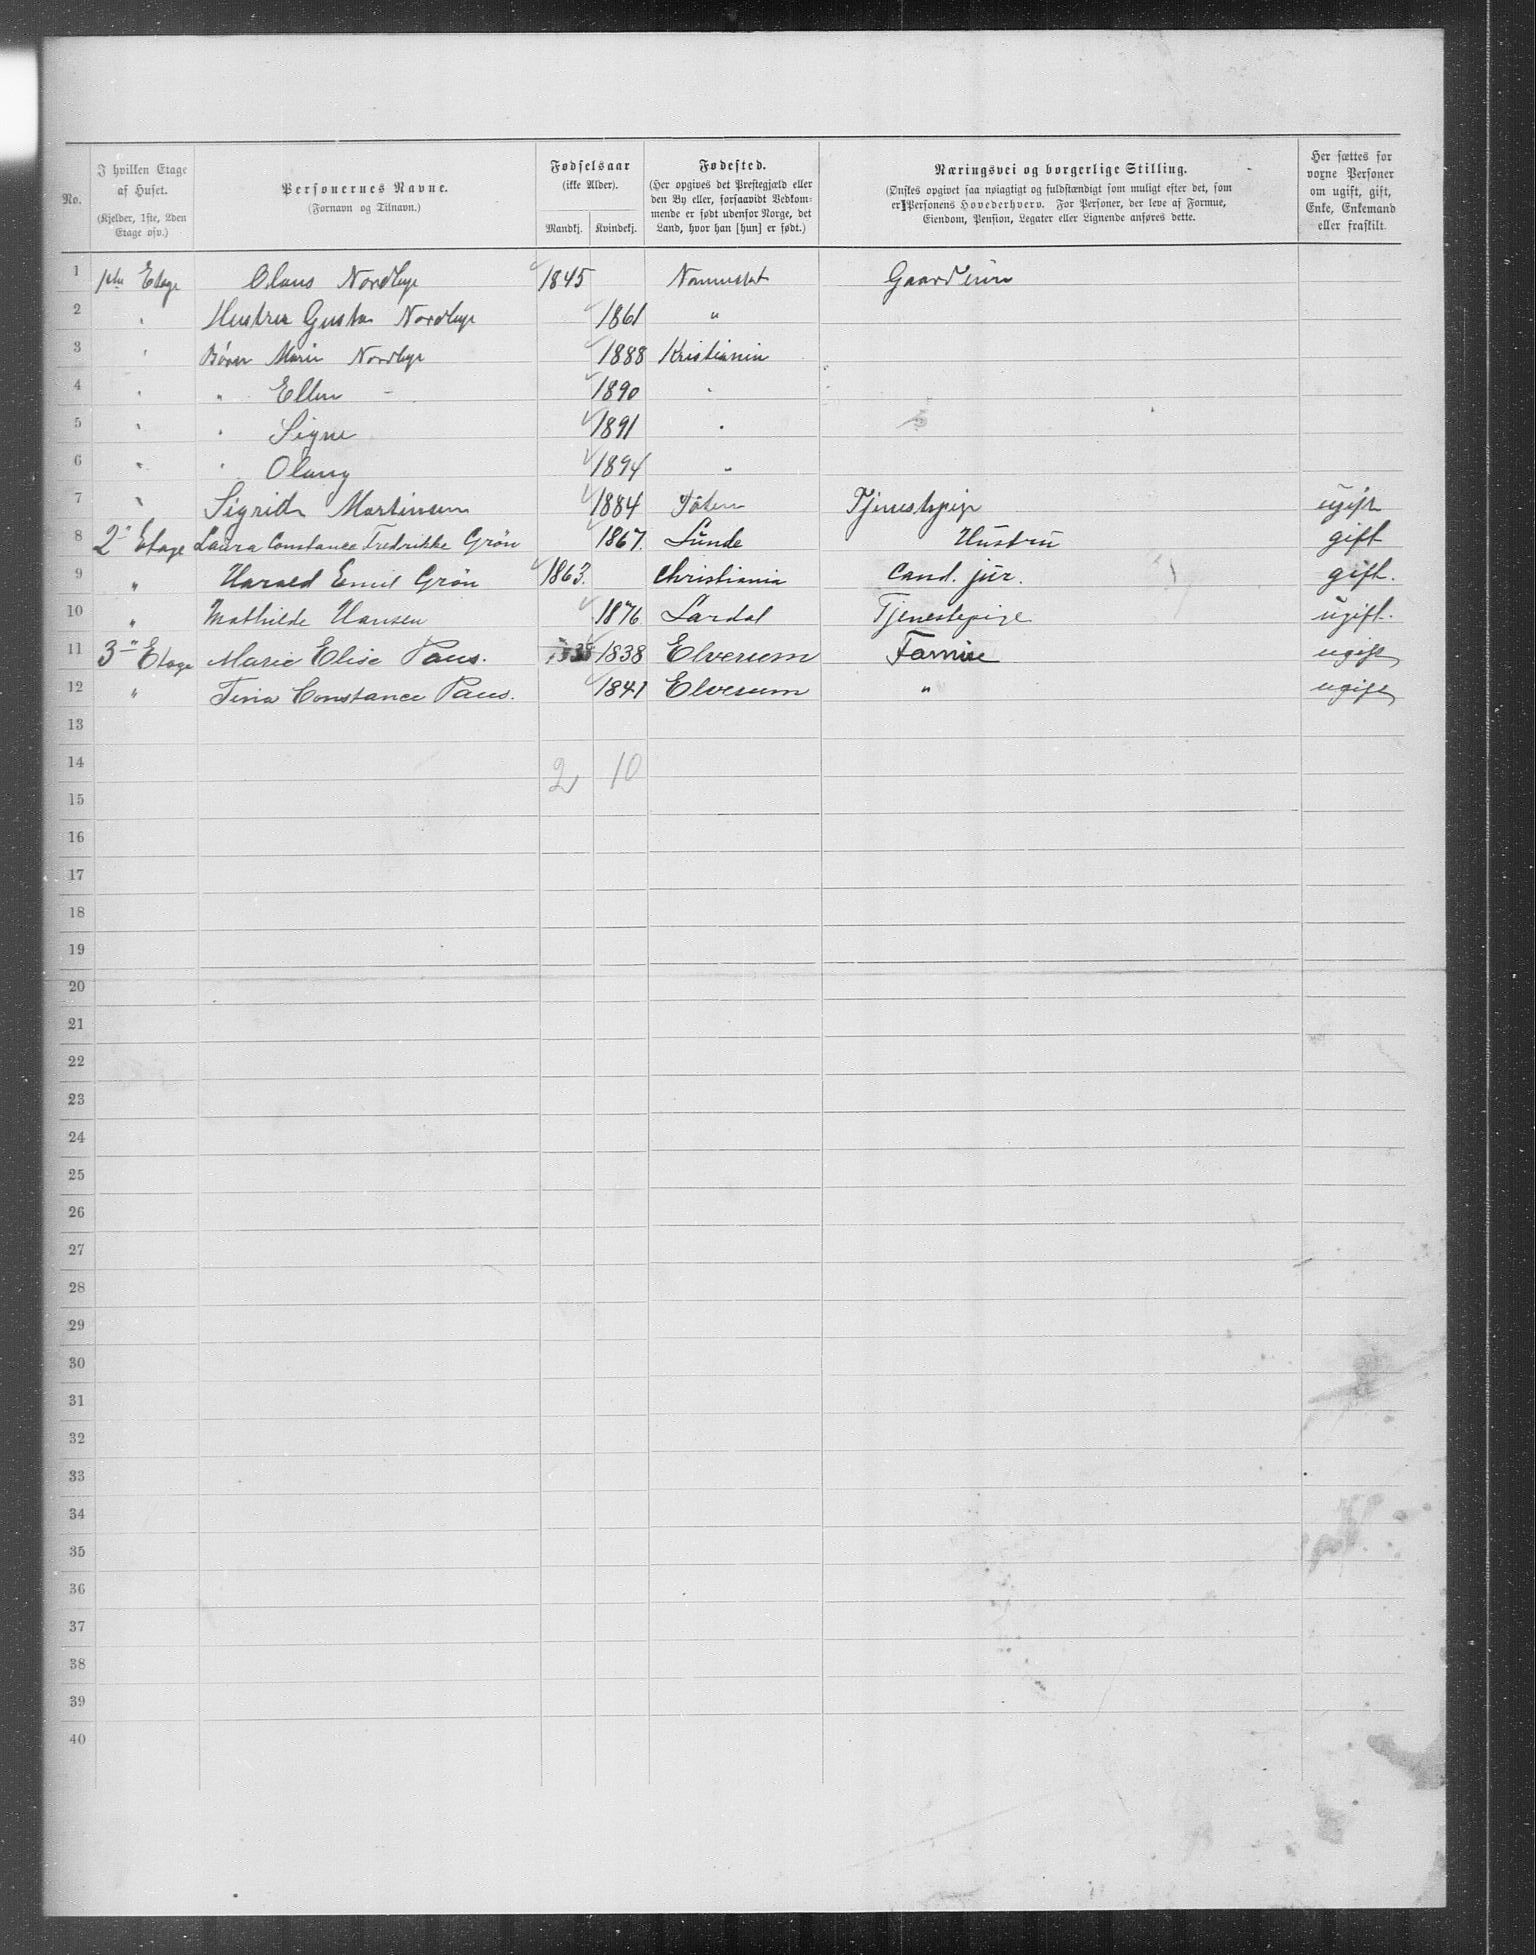 No. | I hvilken Etage af Huset. (Kjelder, 1ste, 2den Etage osv.) | Personernes Navne. (Fornavn og Tilnavn.) | Fødselsaar (ikke Alder). Mandkj. | Kvindekj. | Fødested. (Her opgives det Prestegjæld eller den By eller, forsaavidt Vedkommende er født udenfor Norge, det Land, hvor han [hun] er født.) | Næringsvei og borgerlige Stilling. (Ønskes opgivet saa nøiagtigt og fuldstændigt som muligt efter det, som er Personens Hovederhverv. For Personer, der leve af Formue, Eiendom, Pension, Legater eller Lignende anføres dette.) | Her sættes for voxne Personer om ugift, gift, Enke, Enkemand eller fraskilt.
1 1ste Etage Olaus Nordbye 1845 Nannestad Gaardeier
2 " Hustru Gusta Nordbye 1861 "
3 " Børn Marie Nordbye 1888 Kristiania
4 " " Ellen - 1890 "
5 " " Signe 1891 "
6 " " Olaug 1894 "
7 " Sigrid Martinsen 1884 Toten Tjenestepige ugift
8 2" Etage Laura Constance Fredrikke Grøn 1867. Lunde Hustru gift
9 " Harald Emil Grøn 1863. Christiania Cand. jur. gift.
10 " Mathilde Hansen 1876 Lardal Tjenestepige ugift.
11 3" Etage Marie Elise Paus. 1838 1838 Elverum Formue ugift
12 " Tina Constance Paus. 1841 Elverum " ugift
13
14 2 10
15
16
17
18
19
20
21
22
23
24
25
26
27
28
29
30
31
32
33
34
35
36
37
38
39
40